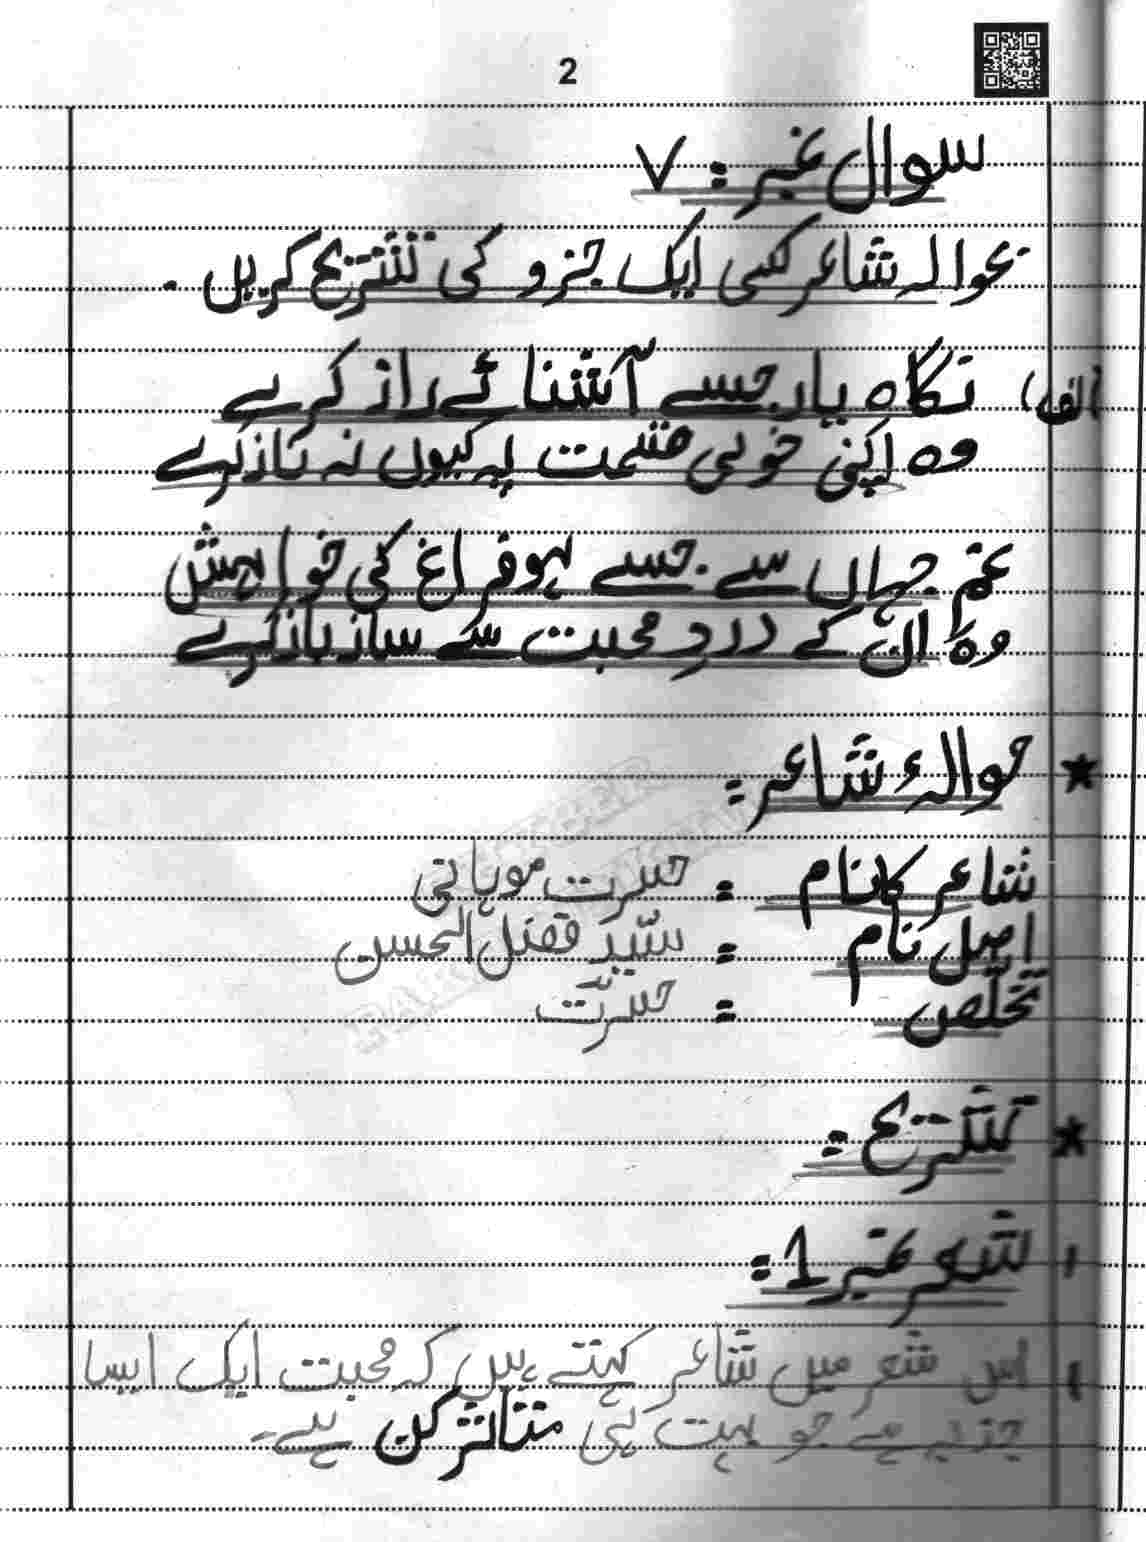 2
سوال نمبر : ۷
بحوالہ شاعر کسی ایک جزو کی تشریح کریں ۔
(الف) نگاہ یار جسے آشنائے راز کرے
وہ اپنی خوبی قسمت پہ کیوں نہ ناز کرے
غم جہاں سے جسے ہو فراغ کی خواہش
وہ ان کے دردِ محبت سے ساز باز کرے
★ حوالہء شاعر :
شاعر کا نام : حسرت موہانی
اصل نام : سیّد فضل الحسن
تخلّص : حسرت
★ تشریح :
شعر نمبر 1 :
اس شعر میں شاعر کہتے ہیں کہ محبت ایک ایسا
جذبہ ہے جو بہت ہی متاثر کن ہے۔